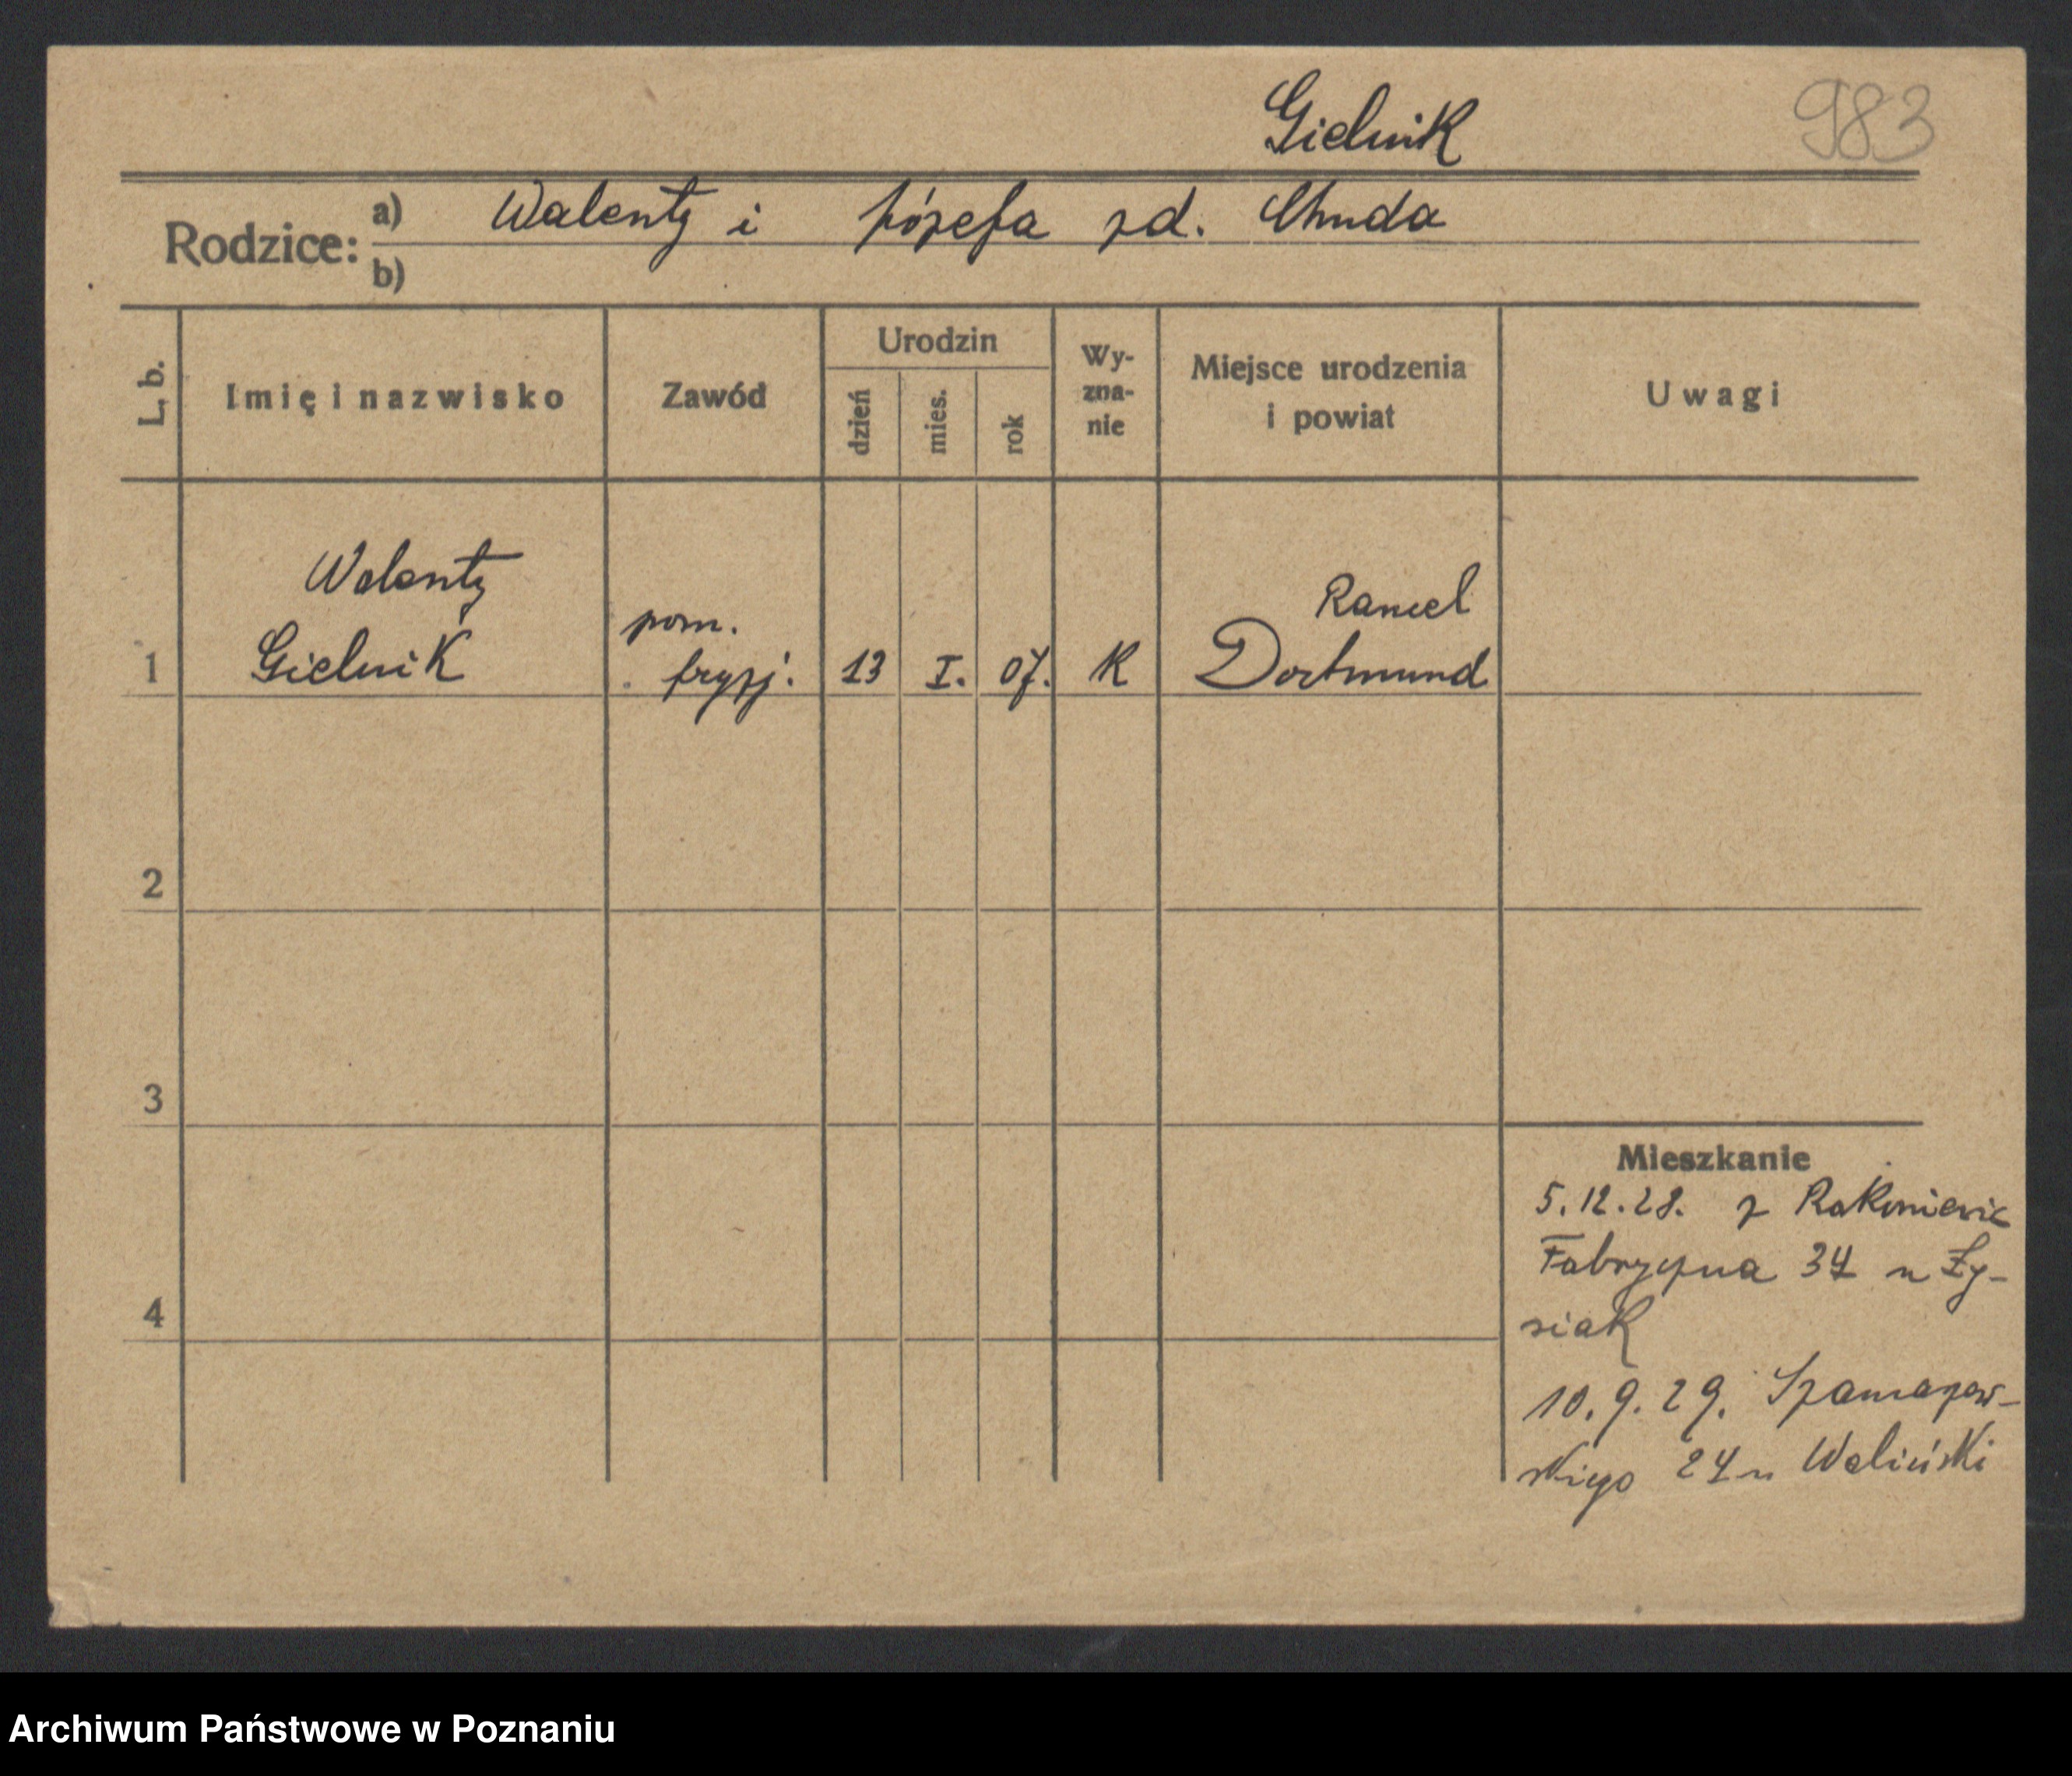 Gielnik
983
Rodzice:
a) Walenty i Józefa zd. Chuda
b)
L. b.
Imię i nazwisko
Zawód
Urodzin
dzień
mies.
rok
Wy-
zna-
nie
Miejsce urodzenia
i powiat
Uwagi
1
Walenty
Gielnik
pom.
fryzj.
13
I.
07.
K
Dortmund
2
3
4
Mieszkanie
5.12.28. z Rakoniewic
Fabryczna 34 u Ły-
siak
10.9.29. Szamarzew-
skiego 24 u Woliński
Archiwum Państwowe w Poznaniu